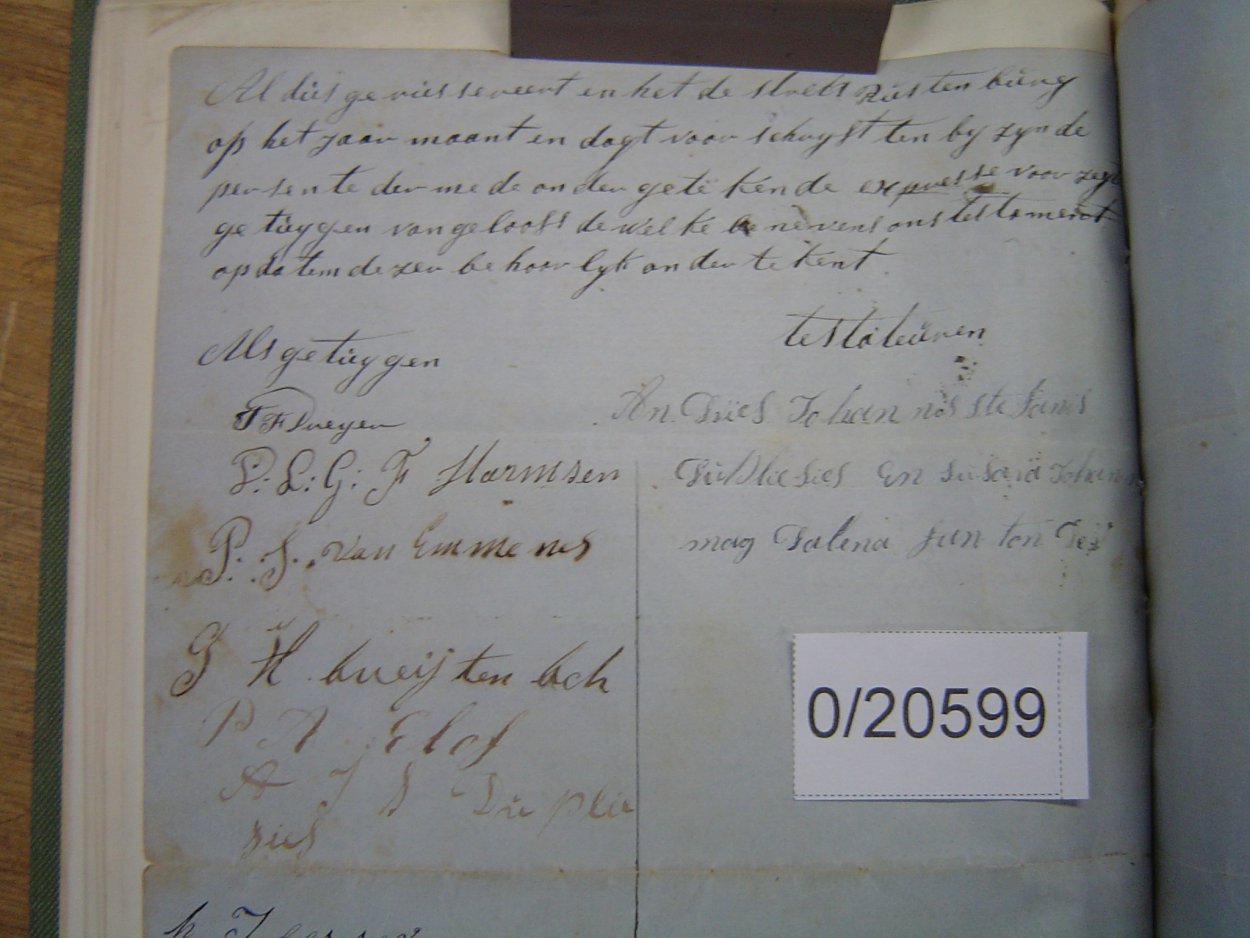 Al düs ge viesseveert en het de strekt Rüstenbürg
op het jaar maant en dagt voor schryft ten by zynde
persente der me de onder getekende expresse voor
getüygen van gelooff de welke benevens ons testament
op datem dezer behoorlyk ondertekent
Als getüygen
testateüren
P: L: G: F Harmsen
P. J. van Emmenes
G H bueijtenbch
P A Elof
A J S Du plie
sies
An Dries Johannes Stefanes
Du Pliesies En Susana Johan
mag Dalena
0/20599